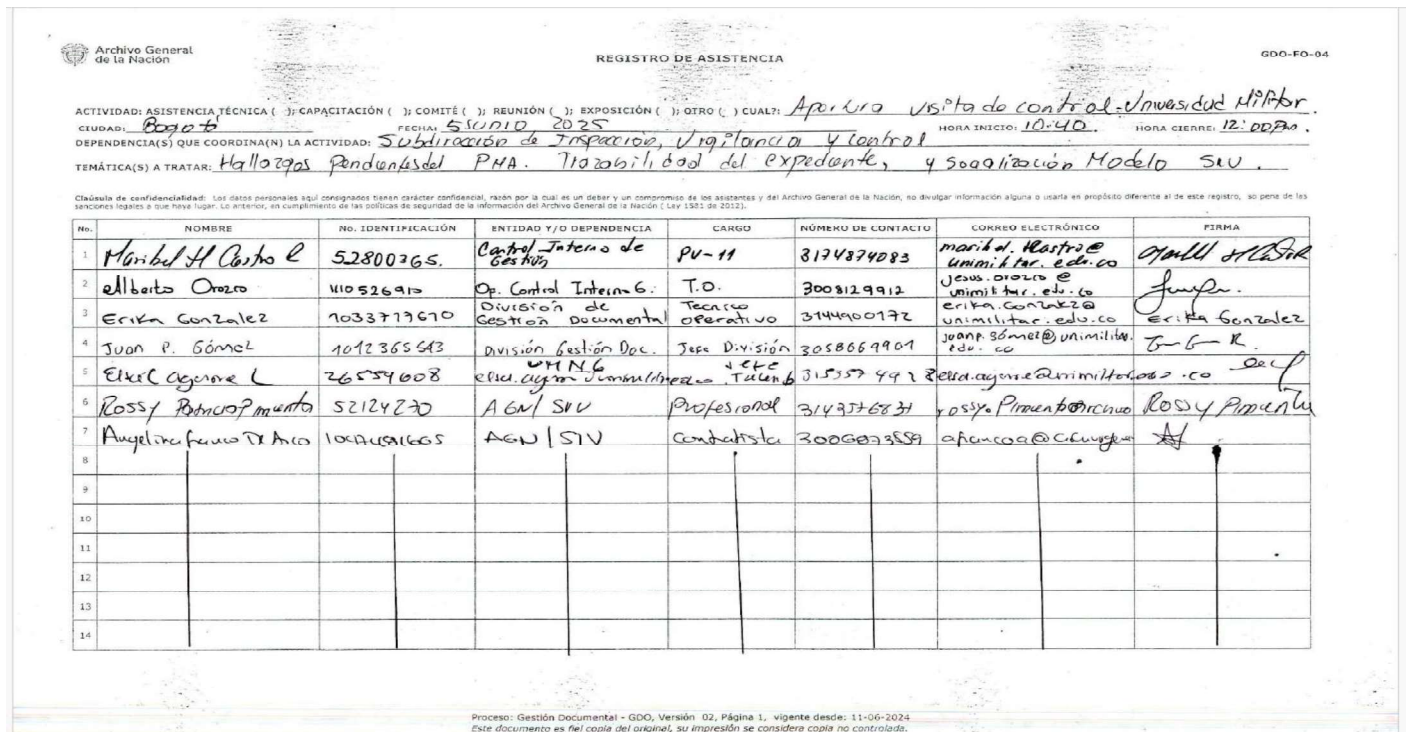 Archivo General
de la Nación
REGISTRO DE ASISTENCIA
GDO-FO-04
ACTIVIDAD: ASISTENCIA TÉCNICA ( ); CAPACITACIÓN ( ); COMITÉ ( ); REUNIÓN ( ); EXPOSICIÓN ( ); OTRO ( ) CUAL?: visita de control - Universidad Militar.
CIUDAD: Bogotá FECHA: 5 Junio 2025 HORA INICIO: 10:40. HORA CIERRE: 12:00
DEPENDENCIA(S) QUE COORDINA(N) LA ACTIVIDAD: Subdirección de Inspección, Vigilancia y control
TEMÁTICA(S) A TRATAR: Hallazgos Pendientes del PMA. Trazabilidad del expediente, y Modelo
Cláusula de confidencialidad: Los datos personales aquí consignados tienen carácter confidencial, razón por la cual es un deber y un compromiso de los asistentes y del Archivo General de la Nación, no divulgar información alguna o usarla en propósito diferente al de este registro, so pena de las
sanciones legales a que haya lugar. Lo anterior, en cumplimiento de las políticas de seguridad de la información del Archivo General de la Nación ( Ley 1581 de 2012).
No. NOMBRE No. IDENTIFICACIÓN ENTIDAD Y/O DEPENDENCIA CARGO NÚMERO DE CONTACTO CORREO ELECTRÓNICO FIRMA
1 Maribel H Castro 52800365. Control Interno de Gestión PV-11 3174874083 unimilitar.edu.co
2 Alberto Orozco Op. Control Interno G. T.O. 3008129912 jesus.orozco@unimilitar.edu.co
3 Erika Gonzalez División de Gestión Documental Tecnico operativo 3144900172 unimilitar.edu.co Erika Gonzalez
4 Juan P. Gómez 1012365543 División Gestión Doc. Jefe División juanp.gómez@unimilitar.edu.co
5 26554608 UMNG Jefe
6 Rossy 52124270 AGN/ Profesional Rossy
7 AGN/SIV contratista
8
9
10
11
12
13
14
Proceso: Gestión Documental - GDO, Versión 02, Página 1, vigente desde: 11-06-2024
Este documento es fiel copia del original, su impresión se considera copia no controlada.